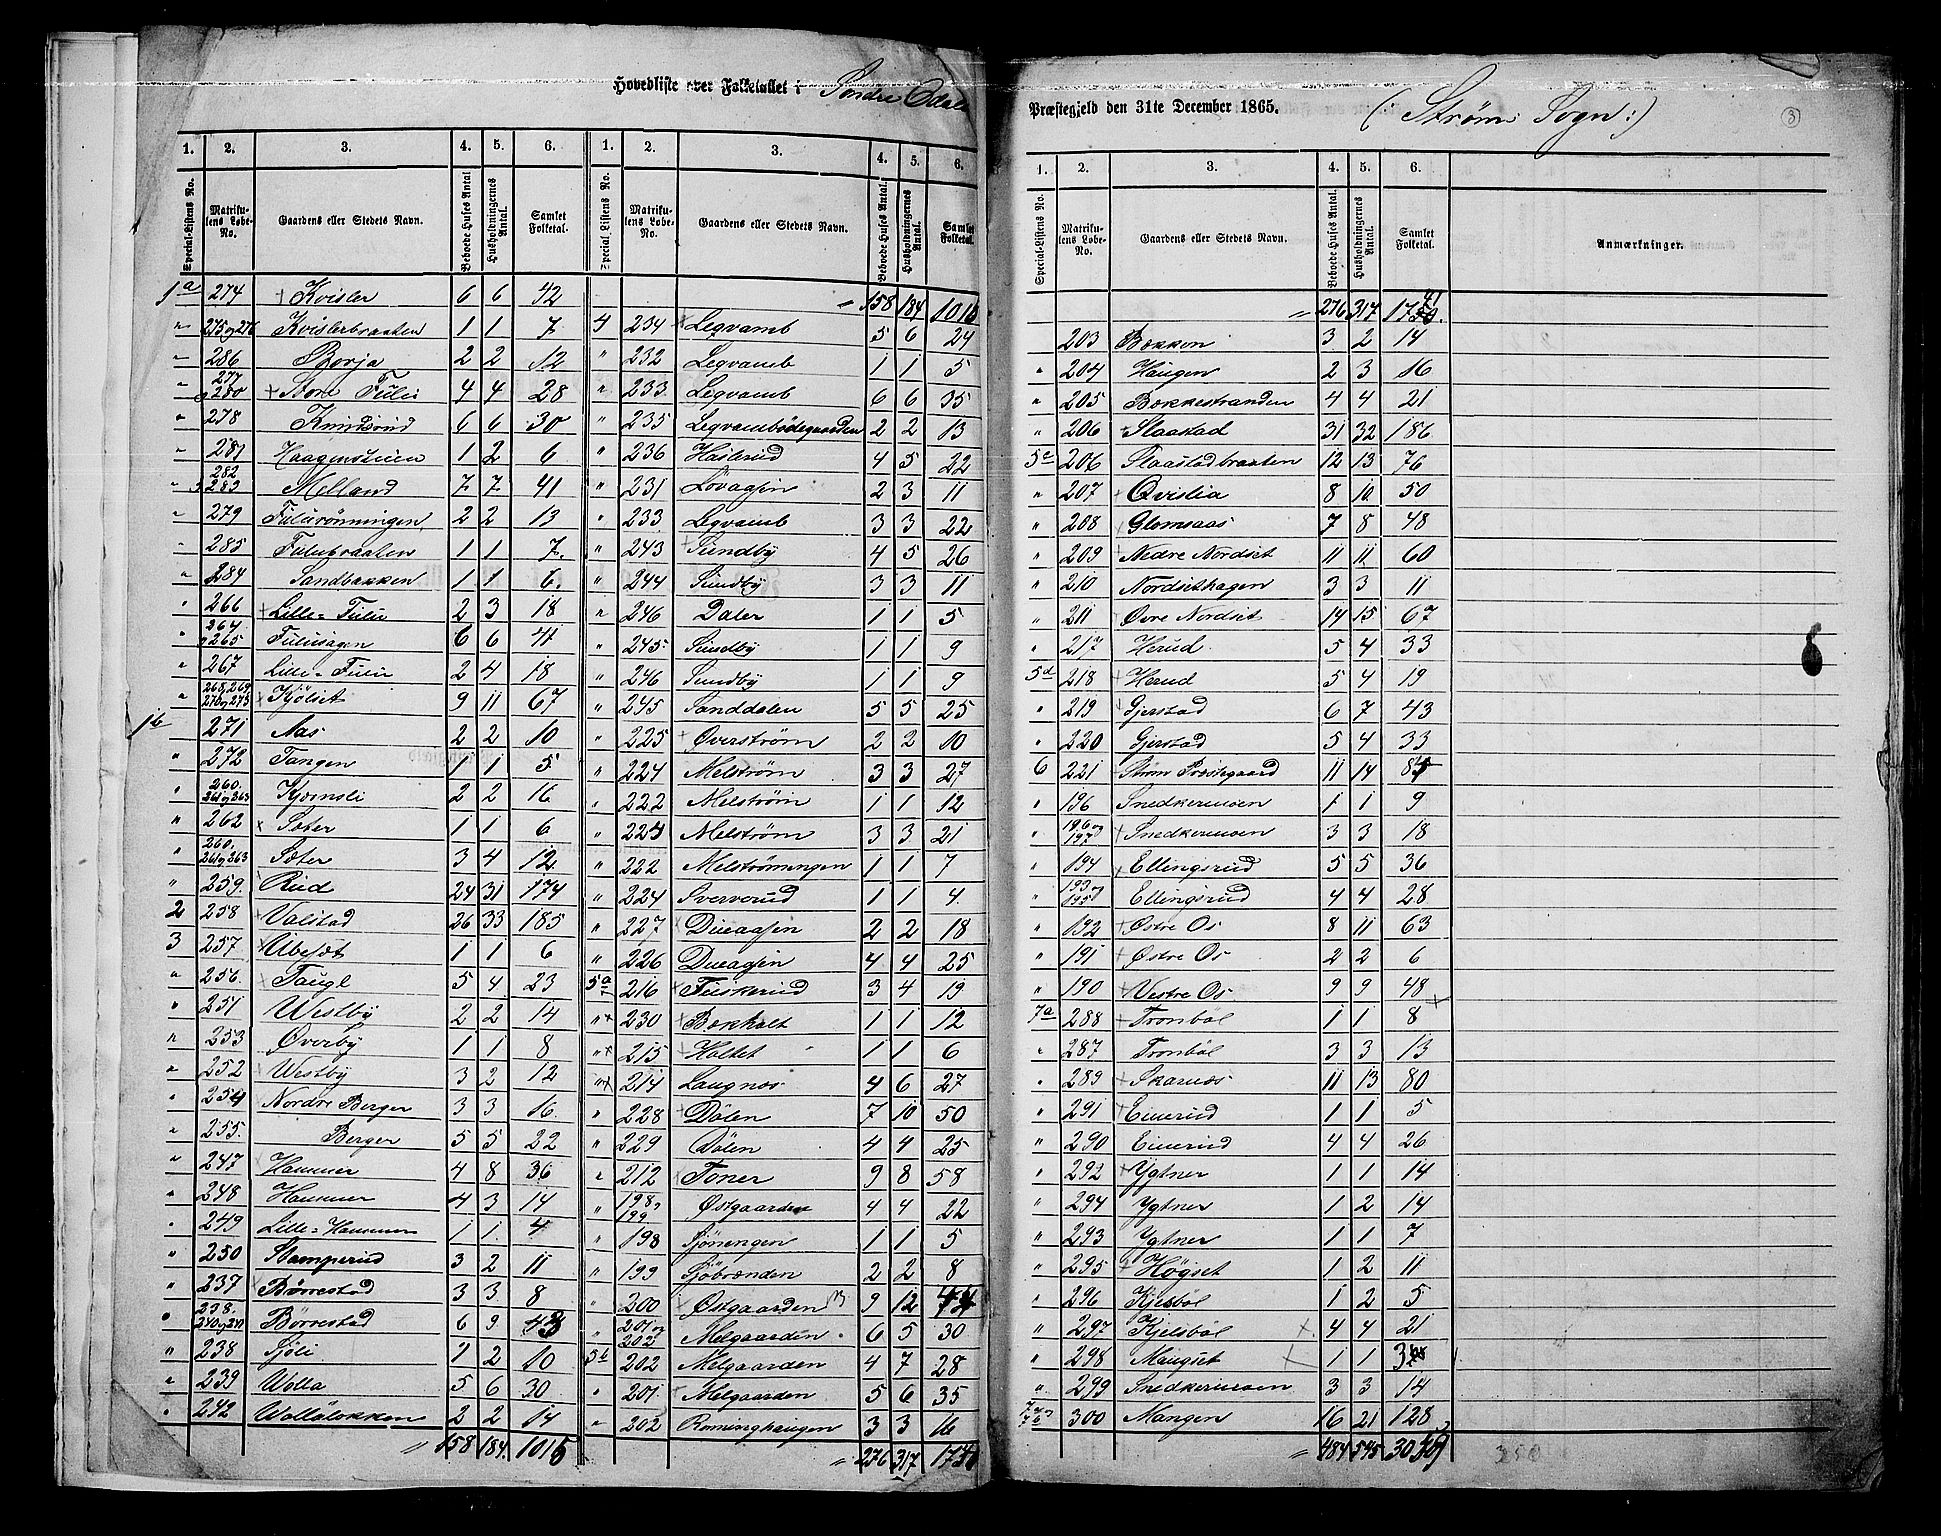 Hovedliste over Folketallet i Søndre Odalen
Præstegjeld den 31te December 1865. (: Strøm Sogn :)
3
1. 2. 3. 4. 5. 6. 1. 2. 3. 4. 5. 6.
Special-Listens No. Matrikulens Løbe-No. Gaardens eller Stedets Navn. Beboede Huses Antal Husholdningernes Antal. Samlet Folketal. Special-Listens No. Matrikulens Løbe-No. Gaardens eller Stedets Navn. Beboede Huses Antal. Husholdningernes Antal. Samlet Folketal.
1a 274 Kvisler 6 6 42
" 275 og 276 Kvislerbraaten 1 1 7
" 286 Borja 2 2 12
" 277 280 Store Fulu 4 4 28
" 278 Knudsrud 6 6 30
" 281 Haagenstuen 1 2 6
" 282 283 Melland 7 7 41
" 279 Fulurönningen 2 2 13
" 285 Fulubraaten 1 1 7
" 284 Sandbakken 1 1 6
" 266 Lille-Fulu 2 3 18
" 264 265 Fuluhagen 6 6 41
" 267 Lille-Fulu 2 4 18
" 268, 269 270 og 273 Kjölset 9 11 67
1b 271 Aas 2 2 10
" 272 Tangen 1 1 5
" 260. 261 og 263 Kjernsli 2 2 16
" 262 Sæter 1 1 6
" 260. 261 og 263 Sæter 3 4 12
" 259. Rud 24 31 174
2 258 Valstad 26 33 185
3 257 Ubeset 1 1 6
" 256. Taugl 5 4 23
" 251 Westby 2 2 14
" 253 Överby 1 1 8
" 252 Westby 3 2 12
" 254 Nordre Berger 3 3 16
" 255. Berger 5 5 22
" 247 Hammer 4 8 36
" 248 Hammer 4 3 14
" 249 Lille-Hammer 1 1 4
" 250 Stamperud 3 2 11
" 237 Börrestad 3 3 8
" 238. 240 og 241 Börrestad 6 9 43
" 238 Sjöli 1 2 10
" 239 Wolla 5 6 30
" 242 Wollalökken 2 2 14
" 158 184 1015
" 158 184 1015
4 234 Legvamb 5 6 24
" 232 Legvamb 1 1 5
" 233 Legvamb 6 6 35
" 235 Legvambödegaarden 2 2 13
" 236 Haslerud 4 5 22
" 231 Lövaasen 2 3 11
" 233 Legvamb 3 3 22
" 243 Sundby 4 5 26
" 244 Sundby 3 3 11
" 246 Daler 1 1 5
" 245 Sundby 1 1 9
" 246 Sundby 1 1 9
" 245 Sanddalen 5 5 25
" 225 Överström 2 2 10
" 224 Melström 3 3 27
" 222 Melström 1 1 12
" 223 Melström 3 3 21
" 222 Melströmengen 1 1 7
" 224 Sververud 1 1 4
" 227 Dueaasen 2 2 18
" 226 Dueaasen 4 4 25
5a 216 Fuskerud 3 4 19
" 230 Bokholt 1 1 12
" 215 Holtet 1 1 6
" 214 Laugnæs 4 6 27
" 228 Dölen 7 10 50
" 229 Dölen 4 4 25
" 212 Toner 9 8 58
" 198, 199 Østgaarden 4 4 22
" 198 Sjönengen 1 1 5
" 199 Sjöbrænden 2 2 8
" 200 Østgaarden 9 12 74
" 201 og 202 Melgaarden 6 5 30
5b 202 Melgaarden 4 7 28
" 201 Melgaarden 5 6 35
" 202 Rominghaugen 3 3 16
" 276 317 1741
1. 2. 3. 4. 5. 6.
Special-Listens No. Matrikulens Løbe-No. Gaardens eller Stedets Navn. Beboede Huses Antal. Husholdningernes Antal. Samlet Folketal. Anmærkninger.
" 276 317 1741
203 Bakken 3 2 14
" 204 Haugen 2 3 16
" 205 Bakkestranden 4 4 21
" 206 Slaastad 31 32 186
5c 206 Slaastadbraaten 12 13 76
" 207 Qvislia 8 10 50
" 208 Glomsaas 7 8 48
" 209 Nedre Nordset 11 11 60
" 210 Nordsethagen 3 3 11
" 211 Øvre Nordset 14 15 67
" 217 Herud 5 4 33
5d 218 Herud 5 4 19
" 219 Gjerstad 6 7 43
" 220 Gjerstad 5 4 33
6 221 Ström Præstegaard 11 14 85
" 196 Snedkermoen 1 1 9
" 196 og 197 Snedkermoen 3 3 18
" 194 Ellingsrud 5 5 36
" 193 og 195 Ellingsrud 4 4 28
" 192 Østre Os 8 11 63
" 191 Østre Os 2 2 6
" 190 Vestre Os 9 9 48
7a 288 Tronböl 1 1 8
" 287 Tronböl 3 3 13
" 289 Skarnæs 11 13 80
" 291 Euerud 1 1 5
" 290 Euerud 4 4 26
" 292 Ygtner 1 1 14
" 294 Ygtner 1 2 14
" 293 Ygtner 1 1 7
" 295 Högset 1 2 11
" 296 Kjelsböl 1 2 5
" 297 Kjelsböl 4 4 21
" 298 Mangset 1 1
" 299 Snedkermoen 3 3 14
300 Mangen 16 21 128
" 484 545
350